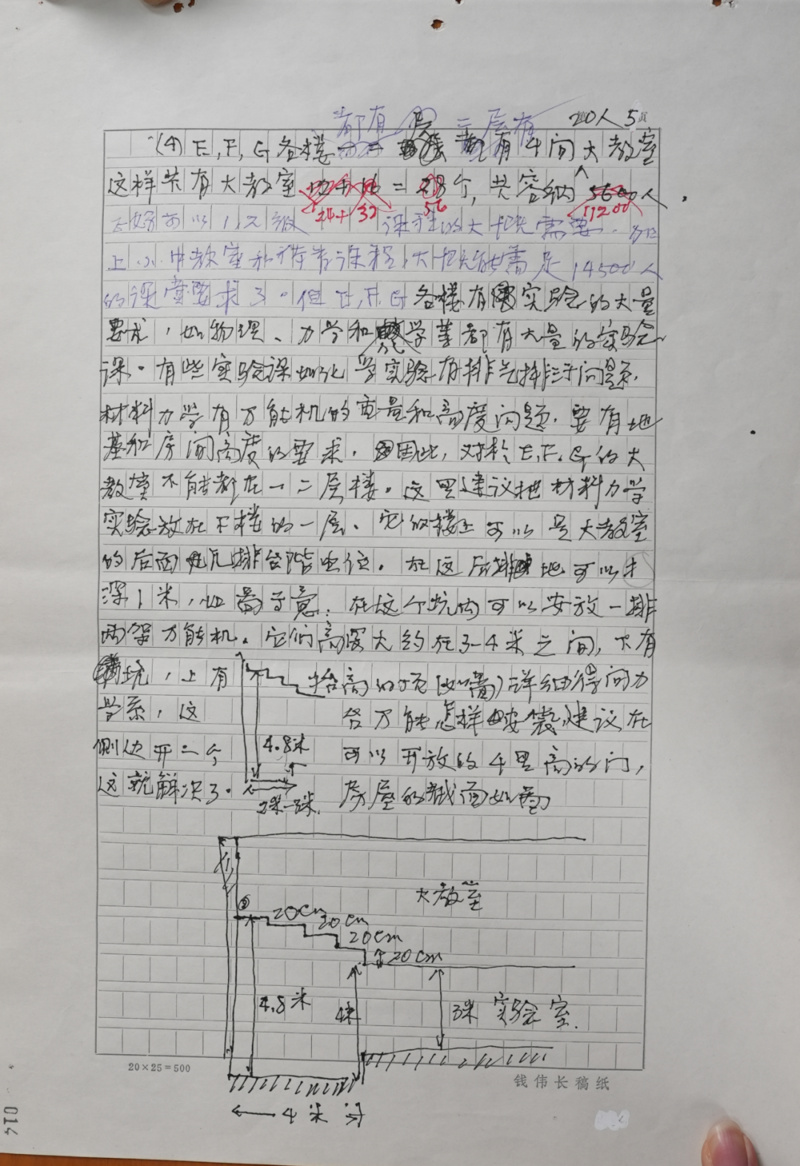 都有 三层有 200人 5
(4) E,F,G各楼 有4间大教室
这样共有大教室 = 个,共容纳5600人.
24+32 56 11200
刚好可以 课程的大块需要.
上.小.中教室和 课程,大块能满足14500人
的课堂要求了.但E,F,G各楼有实验的大量
要求,如物理、力学和 学等都有大量的实验
课.有些实验课如化学实验有排气排污问题.
材料力学有万能机的重量和高度问题.要有地
基和房间高度的要求.因此,对於E,F,G的大
教室不能都在一二层楼.这里建议把材料力学
实验放在F楼的一层、它的楼上可以是大教室
的后面几排台阶坐位.在这后排地可以才
深1米,如图示意.在这个坑内可以安放一排
两架万能机.它们高度大约在3-4米之间,下有
坑,上有 抬高的顶(如图)详细得问力
学系,这 台万能怎样安装,建议在
侧边开二个 4.8米 可以开放的4里高的门,
这就解决了. 2米-3米. 房屋的截面如图
大教室
20cm
20cm
20cm
20cm
4.8米 4米 3米 实验室.
20×25=500 钱伟长稿纸
4米
014